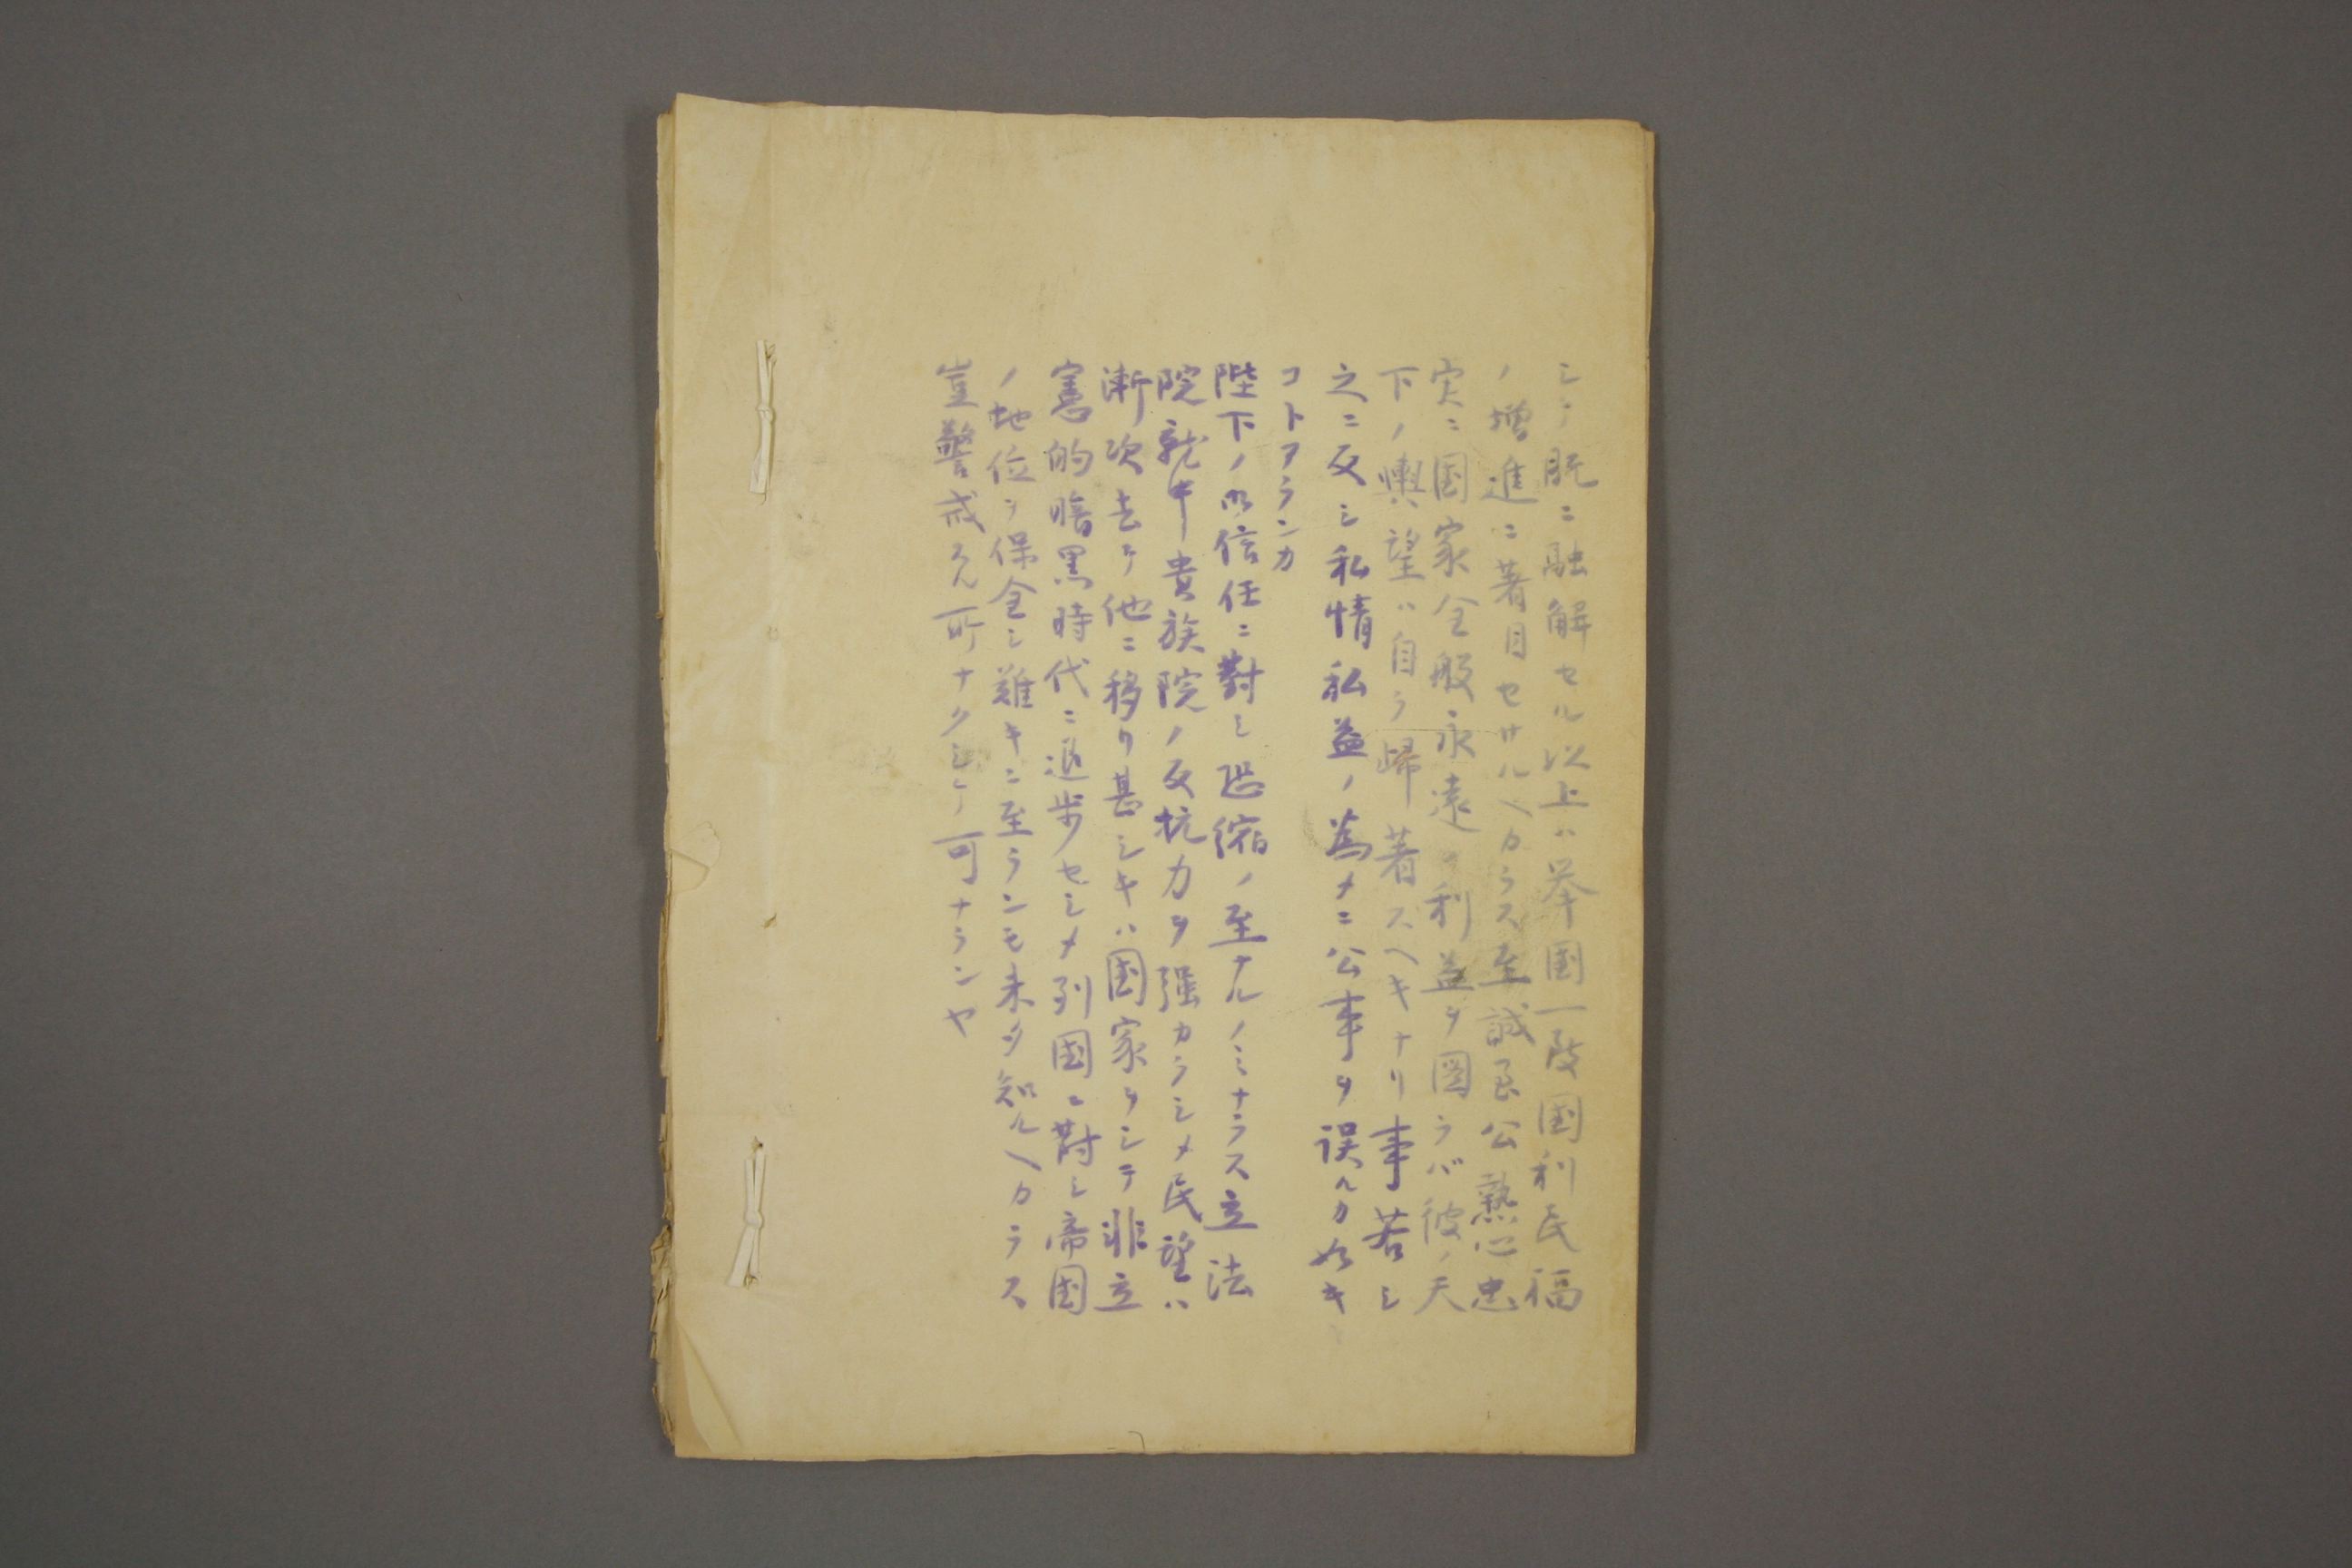 シテ既ニ融解セル以上ハ挙国一致国利民福
ノ増進ニ著目セサルヘカラス至誠良公熱心忠
実ニ国家全般永遠ノ利益ヲ図ラバ彼ノ天
下ノ輿望ハ自ラ歸著スヘキナリ事若シ
之ニ反シ私情私益ノ為メニ公事ヲ誤ルカ如キ
コトアランカ
陛下ノ御信任ニ對シ恐縮ノ至ナルノミナラス立法
院就中貴族院ノ反抗力ヲ强カラシメ民望ハ
漸次去テ他ニ移リ甚シキハ国家ヲシテ非立
憲的暗黒時代ニ退歩セシメ列国ニ對シ帝国
ノ地位ヲ保全シ難キニ至ランモ未タ知ルヘカラス
豈警戒スル所ナクシテ可ナランヤ